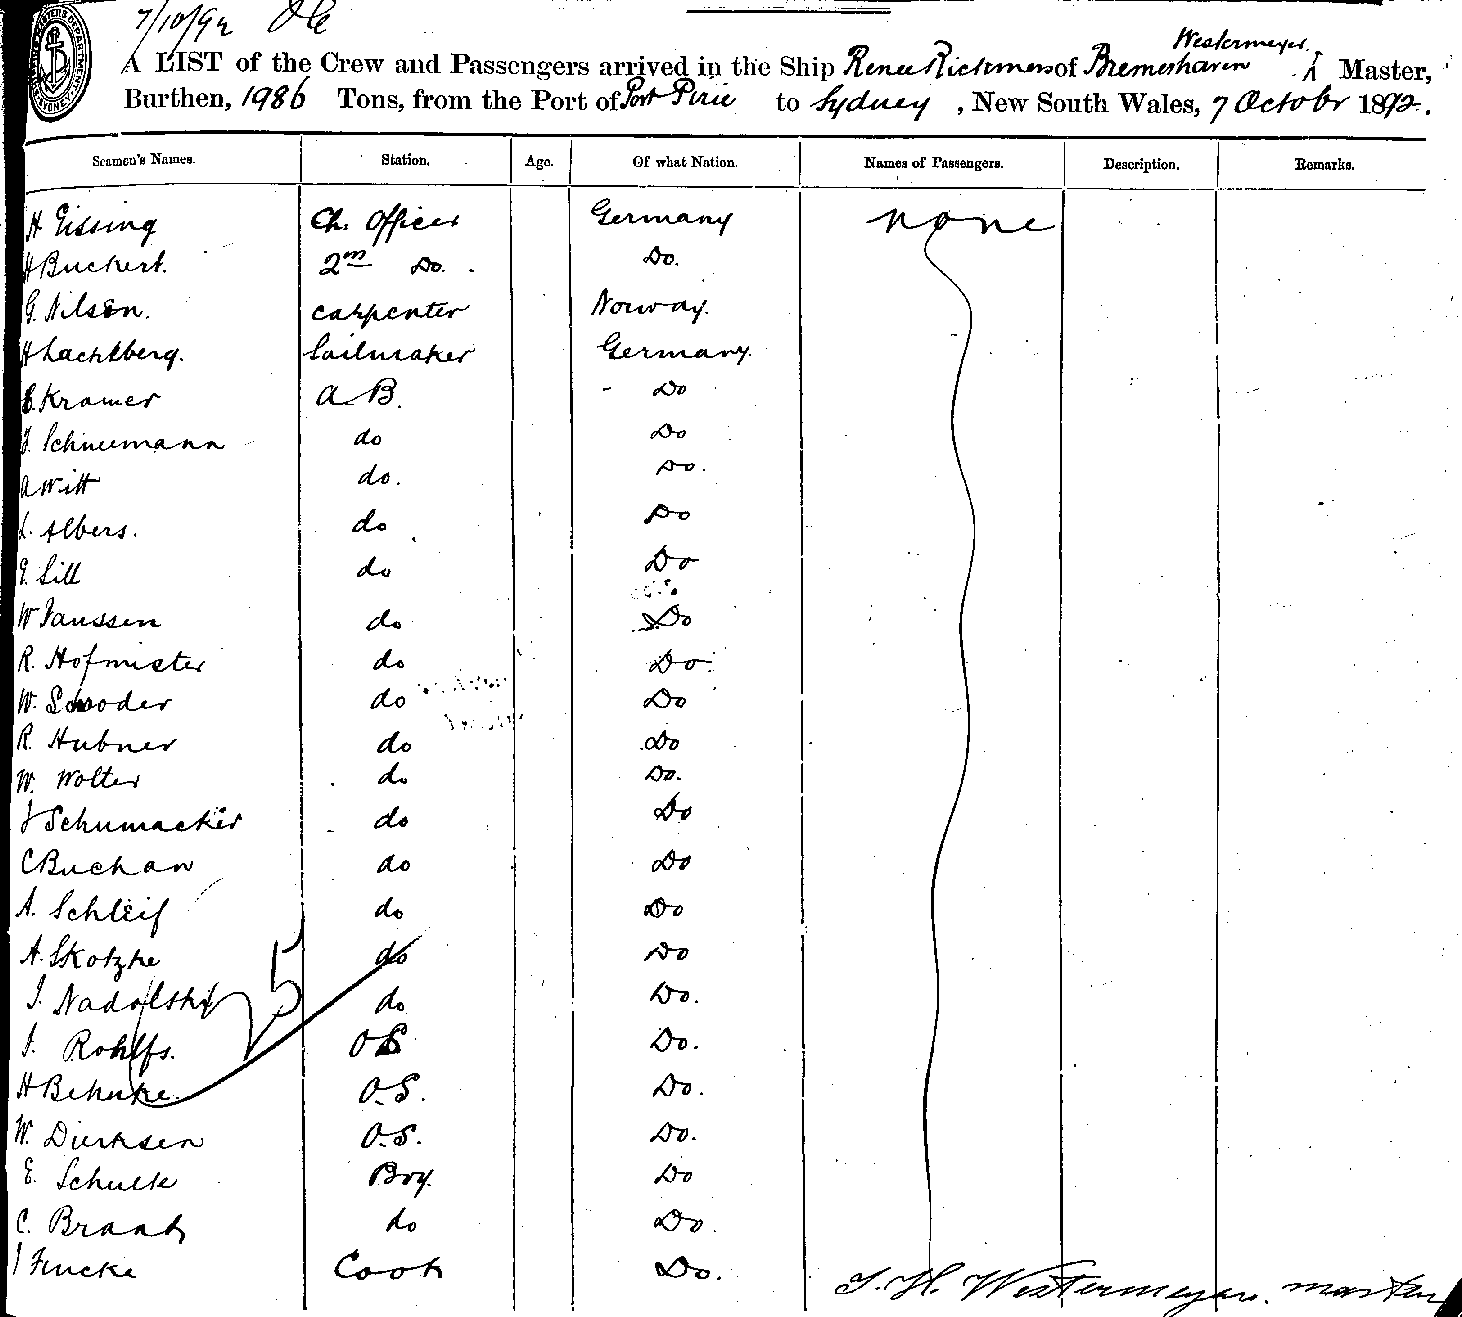 7/10/92
Westermeyer
A LIST of the Crew and Passengers arrived in the Ship Renee Rickmers of Bremerhaven Master,
Burthen, 1986 Tons, from the Port of Port Pirie to Sydney, New South Wales, 7 October 1892.
Seamen's Names. Station. Age. Of what Nation. Names of Passengers. Description. Remarks.
H Eissing Ch. Officer Germany none
H Buckert. 2nd Do. Do.
G. Nilsen. carpenter Norway.
H Lachtberg. Sailmaker Germany.
Kramer A B. Do
Schneemann do Do
A Witt do. Do.
L. Albers. do Do
G. Sill do Do
W Janssen do Do
R. Hofmister do Do
W. Schroder do Do
R. Hubner do Do
W. Wolter do Do.
J Schumacker do Do
C Buchan do Do
A. Schleif do Do
A. Skotzke do Do
J. Nadolsky 5 do Do.
J. Rohlfs. OS Do.
H Behnke. O.S. Do.
W. Dierksen O.S. Do.
E. Schulte Boy. Do
C. Brandt do Do
J Fincke Cook Do.
J. H. Westermeyer. master